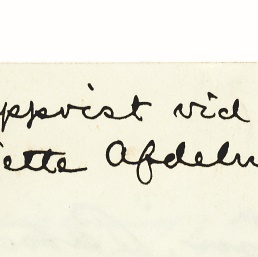 ppvist vid
ette Afdeln